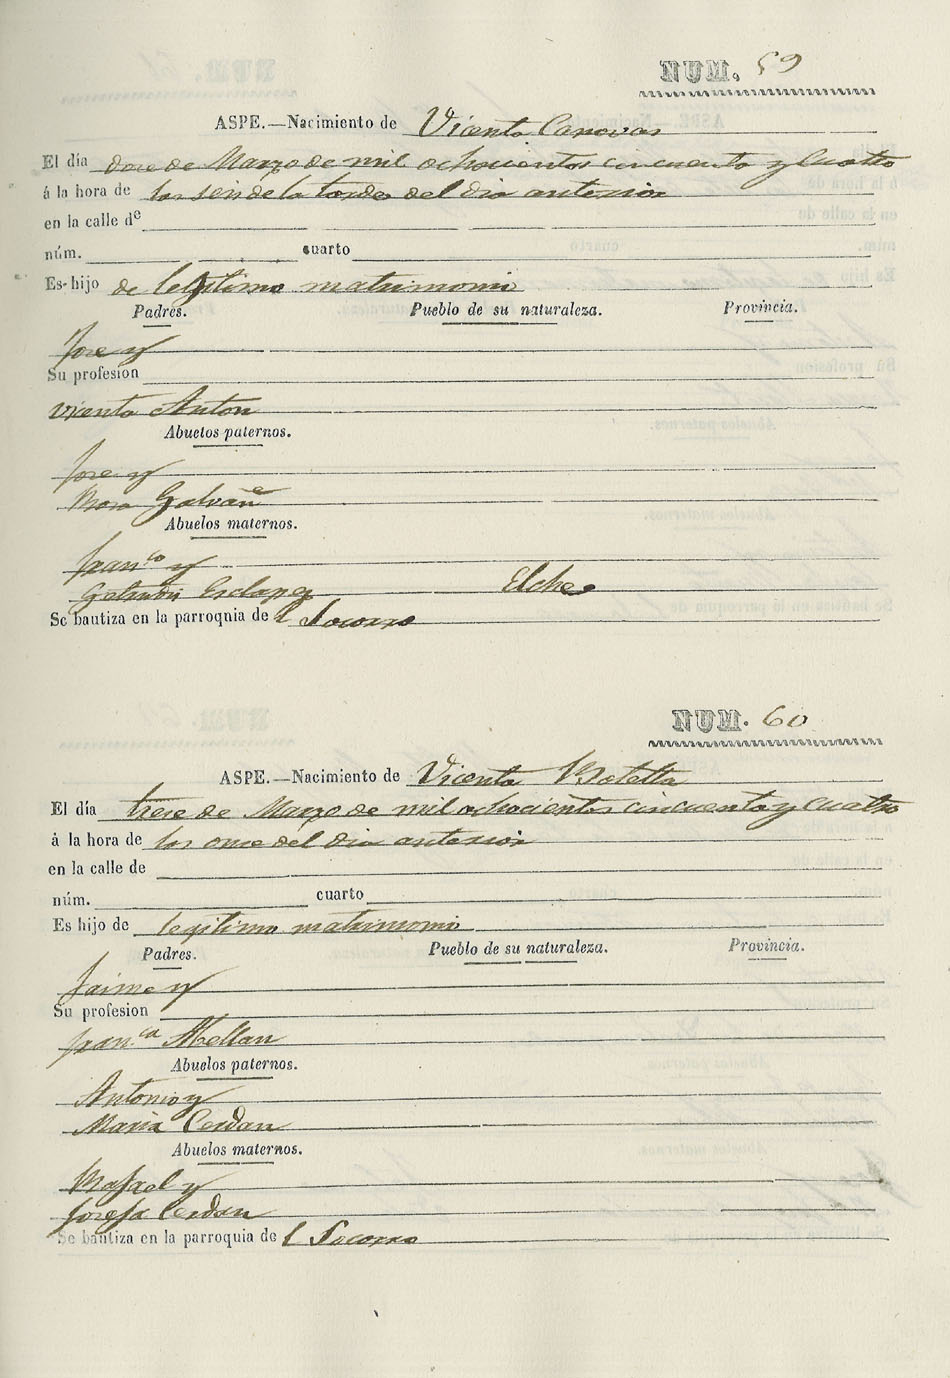 NUM. 59
ASPE.—Nacimiento de Vicenta Canovas
El día doce de Marzo de mil ochocientos cincuenta y Cuatro
á la hora de las seis de la tarde del dia anterior
en la calle de
núm. cuarto
Es hijo de legitimo matrimonio
Padres. Pueblo de su naturaleza. Provincia.
Jose y
Su profesion
Vicenta Anton
Abuelos paternos.
Jose y
Rosa Galvañ
Abuelos maternos.
Fran.co y
Esclapez Elche
Se bautiza en la parroquia del Socorro
NUM. 60
ASPE.—Nacimiento de Vicenta Botella
El día trece de Marzo de mil ochocientos cincuenta y Cuatro
á la hora de las once del dia anterior
en la calle de
núm. cuarto
Es hijo de legitimo matrimonio
Padres. Pueblo de su naturaleza. Provincia.
Jaime y
Su profesion
Fran.ca
Abuelos paternos.
Antonio y
Maria Cerdan
Abuelos maternos.
Rafael y
Josefa Cerdan
Se bautiza en la parroquia de l Socorro